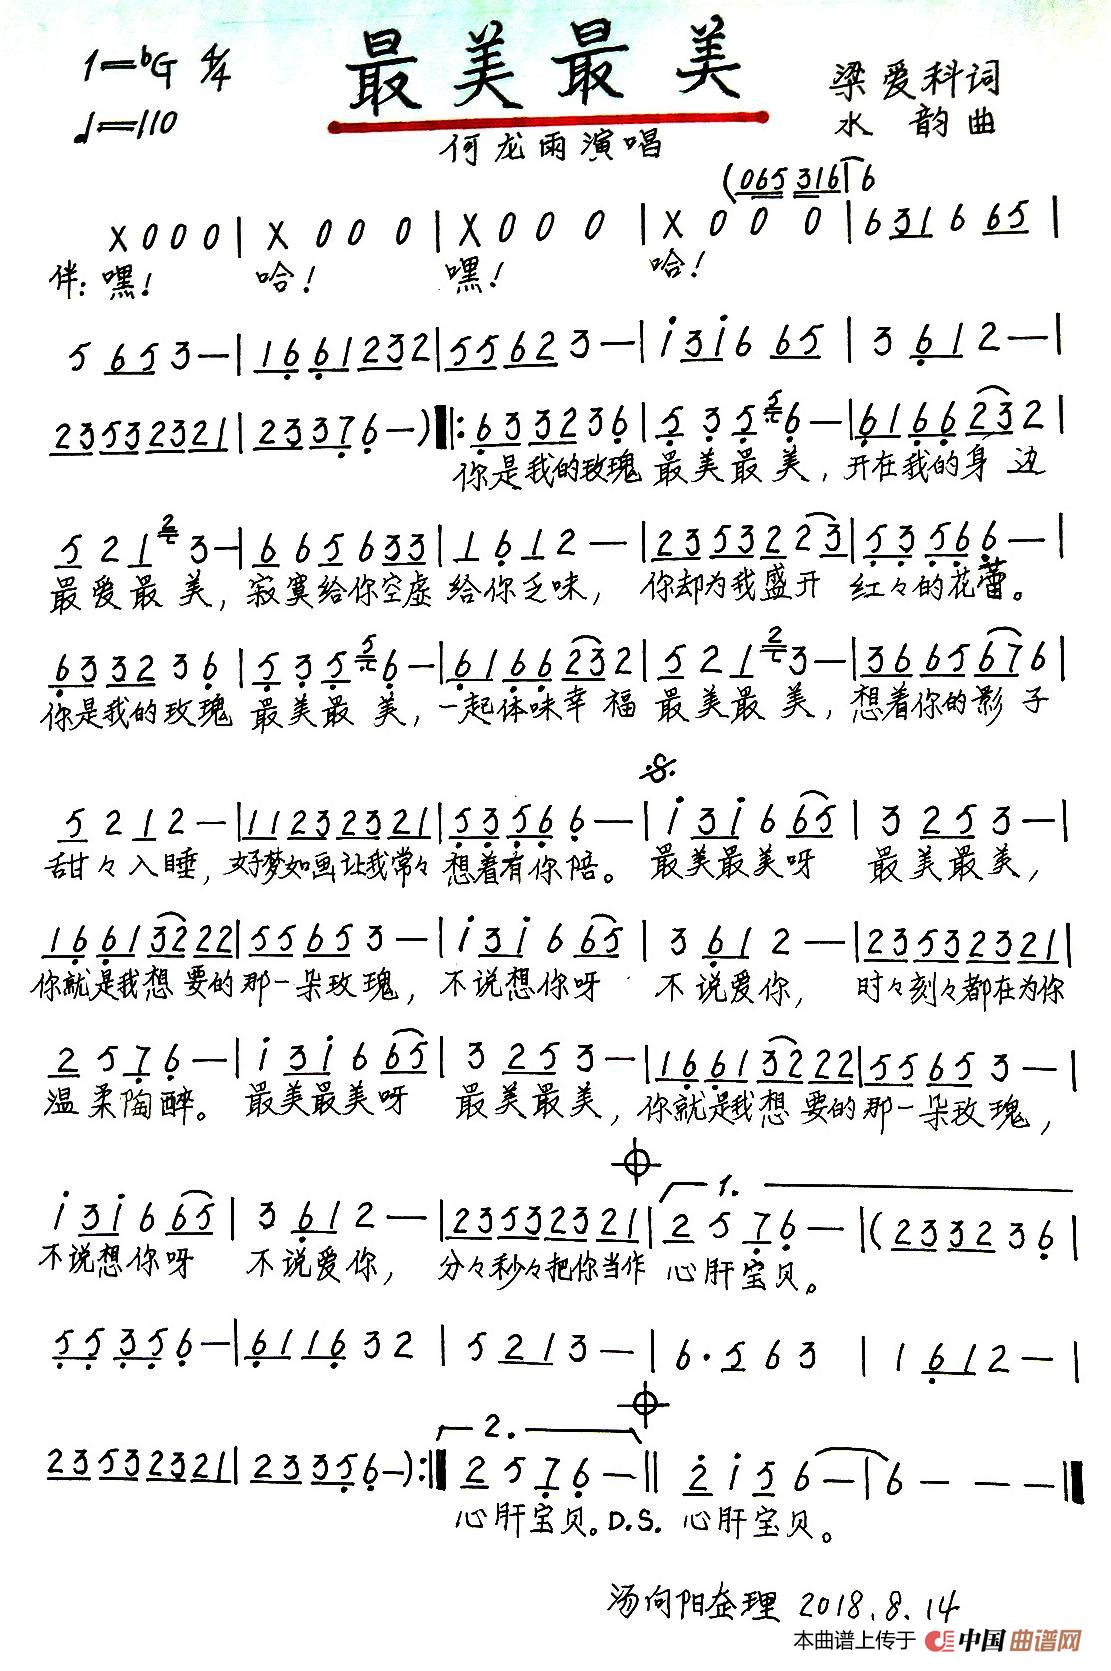 最美最美
1=♭G 4/4
♩=110
梁爱科词
水 韵曲
何龙雨演唱
(065 316 1 6
X 0 0 0 | X 0 0 0 | X 0 0 0 | X 0 0 0 | 6 31 6 65 |
伴:嘿! 哈! 嘿! 哈!
5 65 3 — | 16 61 23 2 | 55 62 3 — | i 3i 6 65 | 3 61 2 — |
23532321 | 2337 6 — ) ‖: 6332 3 6 | 5 3 5 5 6 — | 6166 23 2 |
你是我的玫瑰 最美最美, 开在我的身 边
5 2 1 2 3 — | 6 6 5 6 33 | 1 6 1 2 — | 2353 22 3 | 5356 6 — |
最爱最美, 寂寞给你空虚 给你乏味, 你却为我盛开 红々的花蕾。
6332 3 6 | 5 3 5 5 6 — | 6166 23 2 | 5 2 1 2 3 — | 3665 67 6 |
你是我的玫瑰 最美最美, 一起体味幸福 最美最美, 想着你的影子
5 2 1 2 — | 11232321 | 5356 6 — | i 3i 6 65 | 3 25 3 — |
甜々入睡, 好梦如画让我常々 想着有你陪。 最美最美呀 最美最美,
1661 3222 | 5565 3 — | i 3i 6 65 | 3 61 2 — | 23532321 |
你就是我想 要的那一朵玫瑰, 不说想你呀 不说爱你, 时々刻々都在为你
2 5 7 6 — | i 3i 6 65 | 3 25 3 — | 1661 3222 | 5565 3 — |
温柔陶醉。 最美最美呀 最美最美, 你就是我想 要的那一朵玫瑰,
1.
i 3i 6 65 | 3 61 2 — | 23532321 | 2 5 7 6 — | (2332 3 6 |
不说想你呀 不说爱你, 分々秒々把你当作 心肝宝贝。
5535 6 — | 6116 3 2 | 5 21 3 — | 6· 5 6 3 | 1 61 2 — |
2.
23532321 | 2335 6 — ) :‖ 2 5 7 6 — ‖ 2 i 5 6 — | 6 — — — ‖
心肝宝贝。D.S. 心肝宝贝。
汤向阳整理 2018.8.14
本曲谱上传于 中国曲谱网